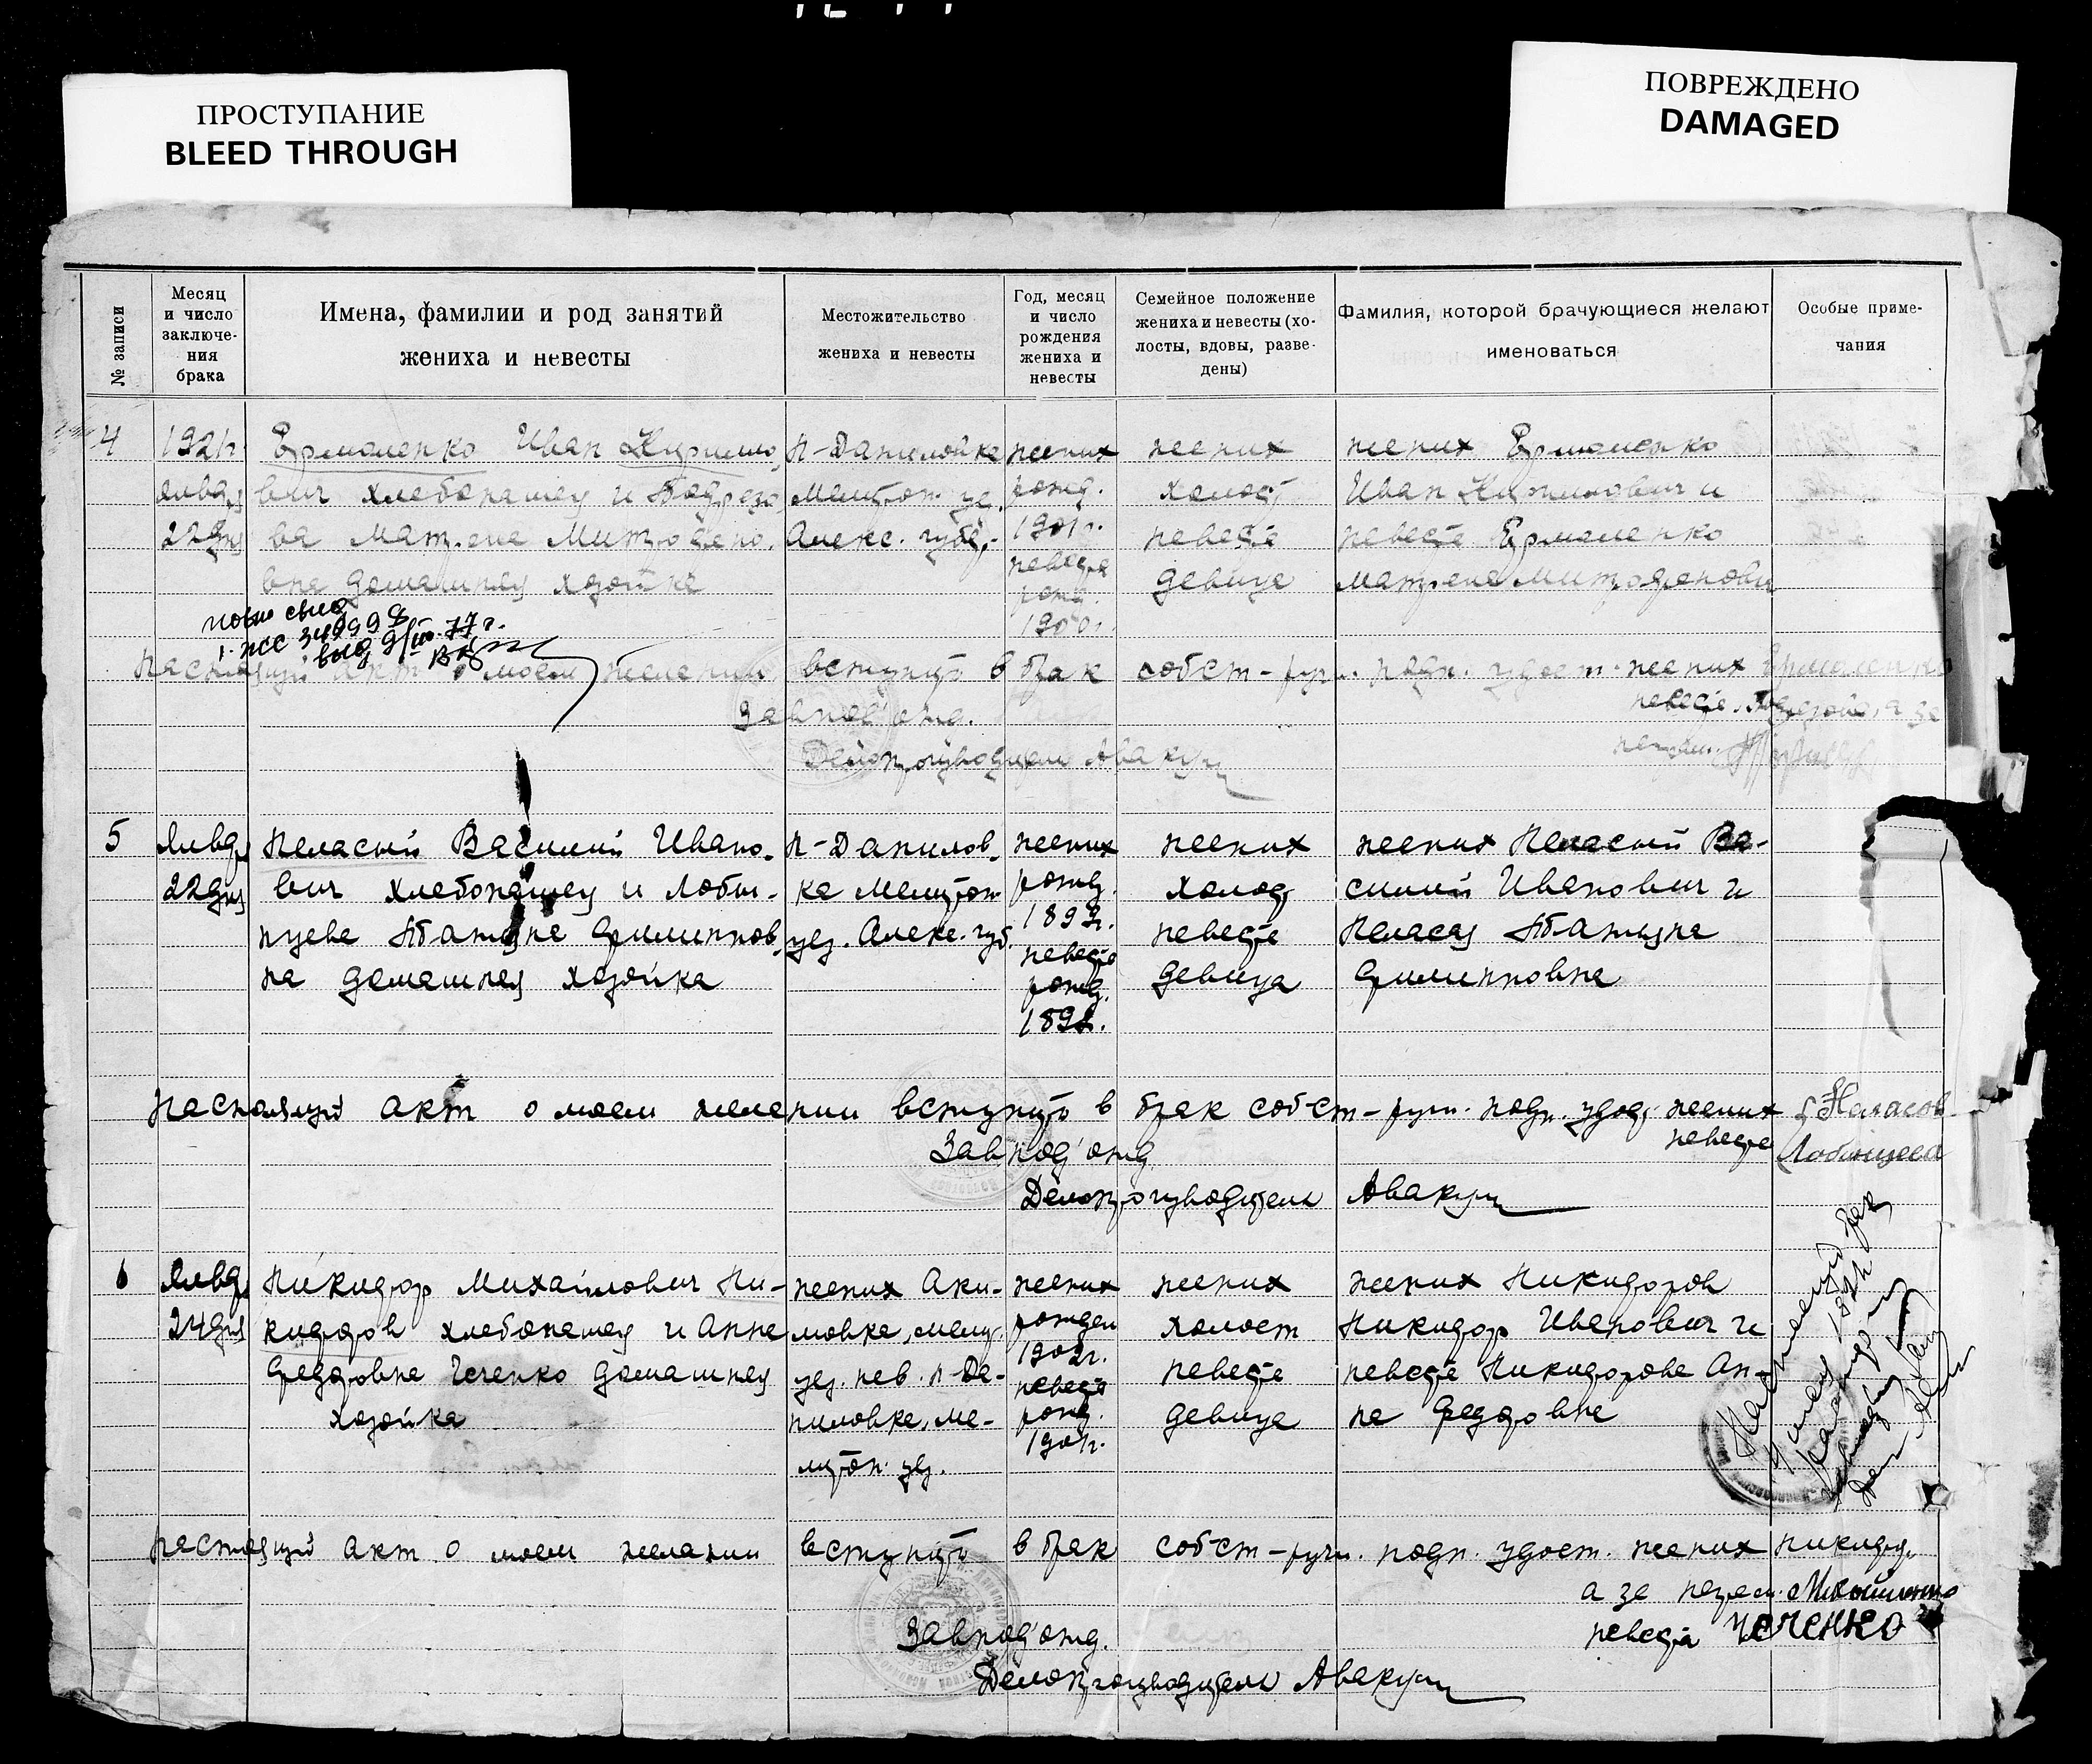 ПРОСТУПАНИЕ
BLEED THROUGH
ПОВРЕЖДЕНО
DAMAGED
№ записи
Месяц
и число
заключе-
ния
брака
Имена, фамилии и род занятий
жениха и невесты
Местожительство
жениха и невесты
Год, месяц
и число
рождения
жениха и
невесты
Семейное положение
жениха и невесты (хо-
лосты, вдовы, разве-
дены)
Фамилия, которой брачующиеся желают
именоваться
Особые приме-
чания
4
1921г.
января
22 дня
Ермоленко Иван Кирилло-
вич хлебопашец и
ва Матрена Митрофано-
вна домашняя хозяйка
Н-Даниловка
Мелитоп. уе.
Алекс. губер.
жених
рожд.
1901г.
невеста
рожд.
1900г.
жених
холост
невеста
девица
жених Ермоленко
Иван Кириллович и
невеста Ермоленко
Матрена Митрофановна
Настоящий акт о моем желании вступить в брак собст-руч. подп. удост. жених Ермоленко
невеста
Завпод'отд.
Делопроизводитель Авакум
5
Январ
22 дня
Неласый Василий Ивано-
вич хлебопашец и Лобын-
цева Татьяна Филиппов-
на домашняя хозяйка
Н-Данилов-
ка Мелитоп.
уез. Алекс. губ.
жених
рожд.
1892г.
невеста
рожд.
жених
холост
невеста
девица
жених Неласый Ва-
силий Иванович и
Неласая Татьяна
Филипповна
Настоящий акт о моем желании вступить в брак собст-руч. подп. удост. жених
невеста Лобынцева
Завпод'отд.
Делопроизводитель Авакум
6
Январ
24 дня
Никидор Михайлович Ни-
кидоров хлебопашец и Анна
Федоровна Чеченко домашняя
хозяйка
жених Аки-
мовка, мелит.
уез. нев. Н-Да-
ниловка, ме-
литоп. уез.
жених
рожден
1902г.
невеста
рожд.
1901г.
жених
холост
невеста
девица
жених Никидоров
Никидор Иванович и
невеста Никидорова Ан-
на Федоровна
Настоящий акт о моем желании вступить в брак собст-ручн. подп. удост. жених Никидор.
а за неграм.
невеста Чеченко
Завпод'отд.
Делопроизводитель Авакум